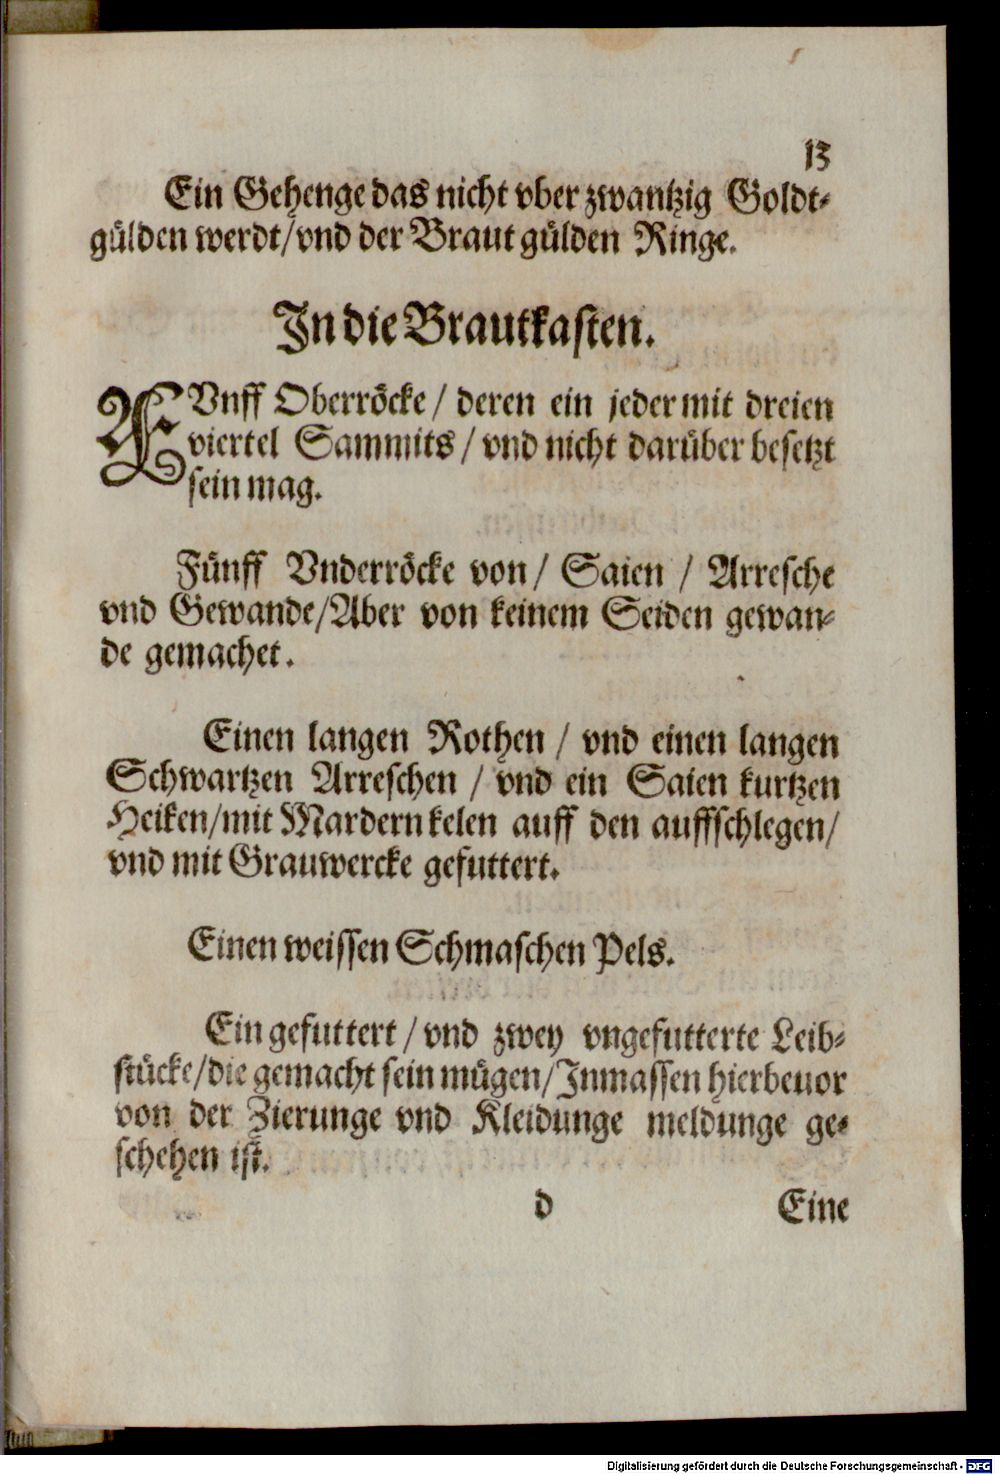 13
Ein Gehenge das nicht vber zwantzig Goldt-
gülden werdt/vnd der Braut gülden Ringe.
In die Brautkasten.
FVnff Oberröcke / deren ein jeder mit dreien
viertel Sammits / vnd nicht darüber besetzt
sein mag.
Fünff Vnderröcke von / Saien / Arresche
vnd Gewande/Aber von keinem Seiden gewan-
de gemachet.
Einen langen Rothen / vnd einen langen
Schwartzen Arreschen / vnd ein Saien kurtzen
Heiken/mit Mardern kelen auff den auffschlegen/
vnd mit Grauwercke gefuttert.
Einen weissen Schmaschen Pels.
Ein gefuttert / vnd zwey vngefutterte Leib-
stücke/die gemacht sein mügen/Inmassen hierbeuor
von der Zierunge vnd Kleidunge meldunge ge-
schehen ist.
d Eine
Digitalisierung gefördert durch die Deutsche Forschungsgemeinschaft - DFG